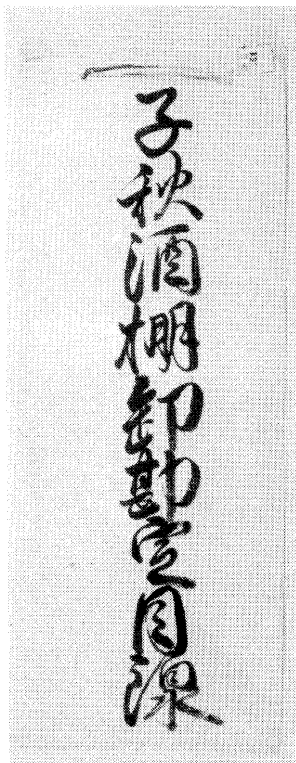 子秋酒棚卸勘定目録